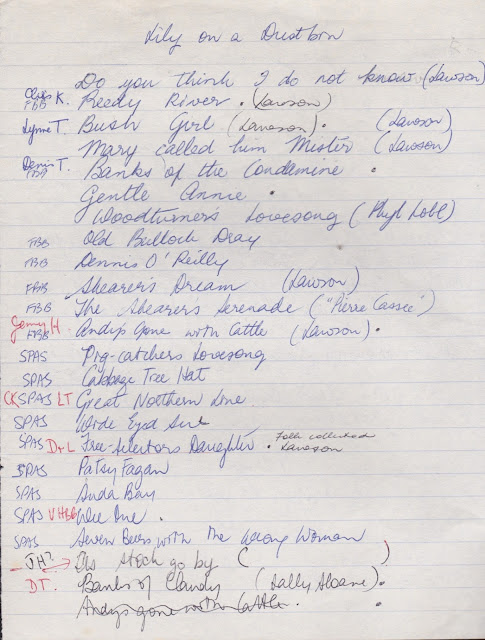 Lily on a Dustbin
Do you think I do not know (Lawson)
Chris K. FBB Reedy River . (Lawson)
Lynne T. Bush Girl (Lawson). (Lawson)
Mary called him Mister (Lawson)
Denis T. Banks of the Condamine .
Gentle Annie .
Woodturner's Lovesong (Phyl Lobl)
FBB Old Bullock Dray
FBB Dennis O'Reilly
FBB Shearer's Dream (Lawson)
FBB The Shearer's Serenade ("Pierre Cassee")
Jenny H. FBB Andys Gone with Cattle (Lawson) .
SPAS Pig-catchers Lovesong
SPAS Cabbage Tree Hat
CK SPAS LT Great Northern Line
SPAS Wide Eyed
SPAS D+L Free-selectors Daughter . Folk collected Lawson
SPAS Patsy Fagan
SPAS Anda Bay
SPAS VHBB Wee One .
SPAS Seven Beers with the Wrong Woman
JH? → As stock go by ( )
DT. Banks of Claudy (Sally Sloane) .
Andys gone with Cattle. .